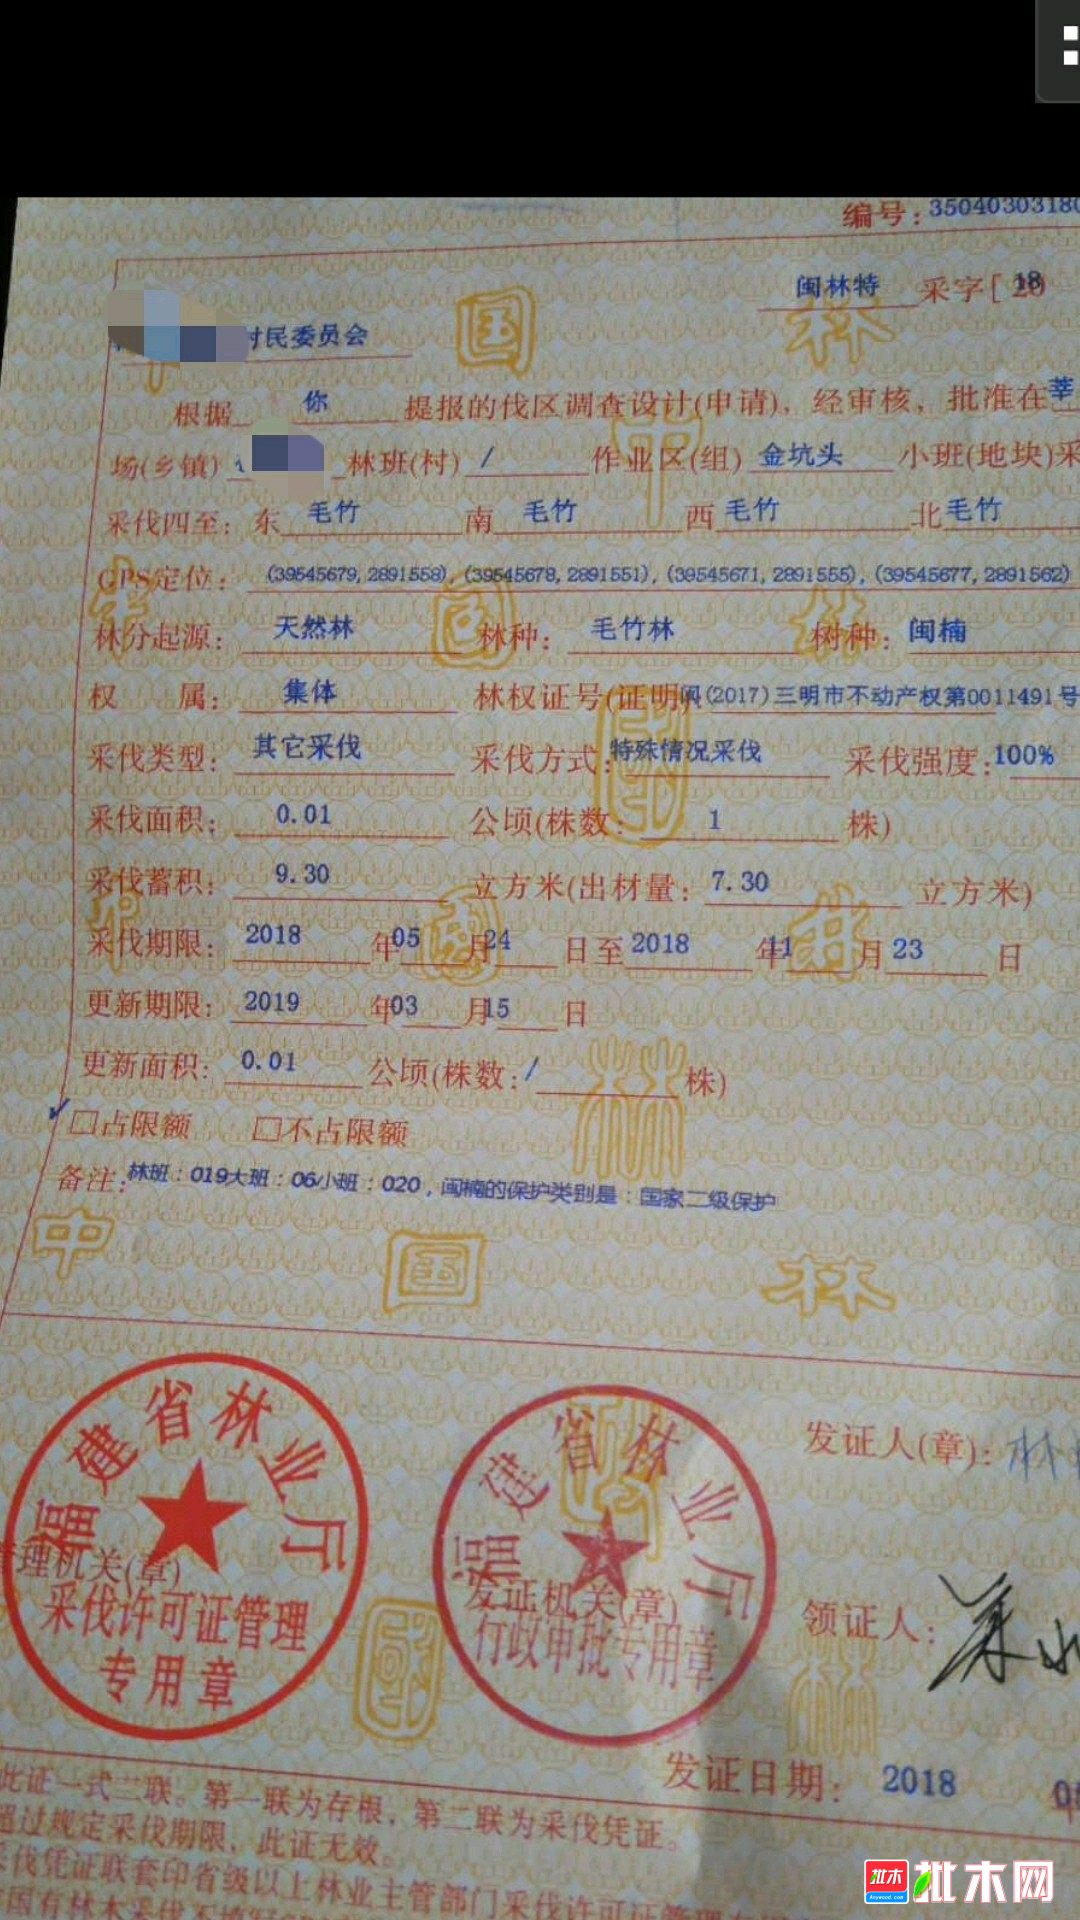 编号:35040303180
闽林特 采字[2018
村民委员会
根据 你 提报的伐区调查设计(申请)，经审核，批准在莘
场(乡镇) 林班(村) / 作业区(组) 金坑头 小班(地块)采
采伐四至: 东 毛竹 南 毛竹 西 毛竹 北 毛竹
GPS定位: (39545679,2891558),(39545678,2891551),(39545671,2891555),(39545677,2891562)
林分起源: 天然林 林种: 毛竹林 树种: 闽楠
权 属: 集体 林权证号(证明) 闽(2017)三明市不动产权第0011491号
采伐类型: 其它采伐 采伐方式: 特殊情况采伐 采伐强度: 100%
采伐面积: 0.01 公顷(株数: 1 株)
采伐蓄积: 9.30 立方米(出材量: 7.30 立方米)
采伐期限: 2018 年 05 月 24 日至 2018 年 11 月 23 日
更新期限: 2019 年 03 月 15 日
更新面积: 0.01 公顷(株数: / 株)
✓□占限额 □不占限额
备注: 林班:019大班:06小班:020，闽楠的保护类别是:国家二级保护
中 国 林
福建省林业厅
采伐许可证管理
专用章
管理机关(章)
福建省林业厅
行政审批专用章
发证机关(章)
发证人(章): 林
领证人:
发证日期: 2018
此证一式二联。第一联为存根，第二联为采伐凭证。
超过规定采伐期限，此证无效。
采伐凭证联套印省级以上林业主管部门采伐许可证管理
批木
Anywood.com
批木网